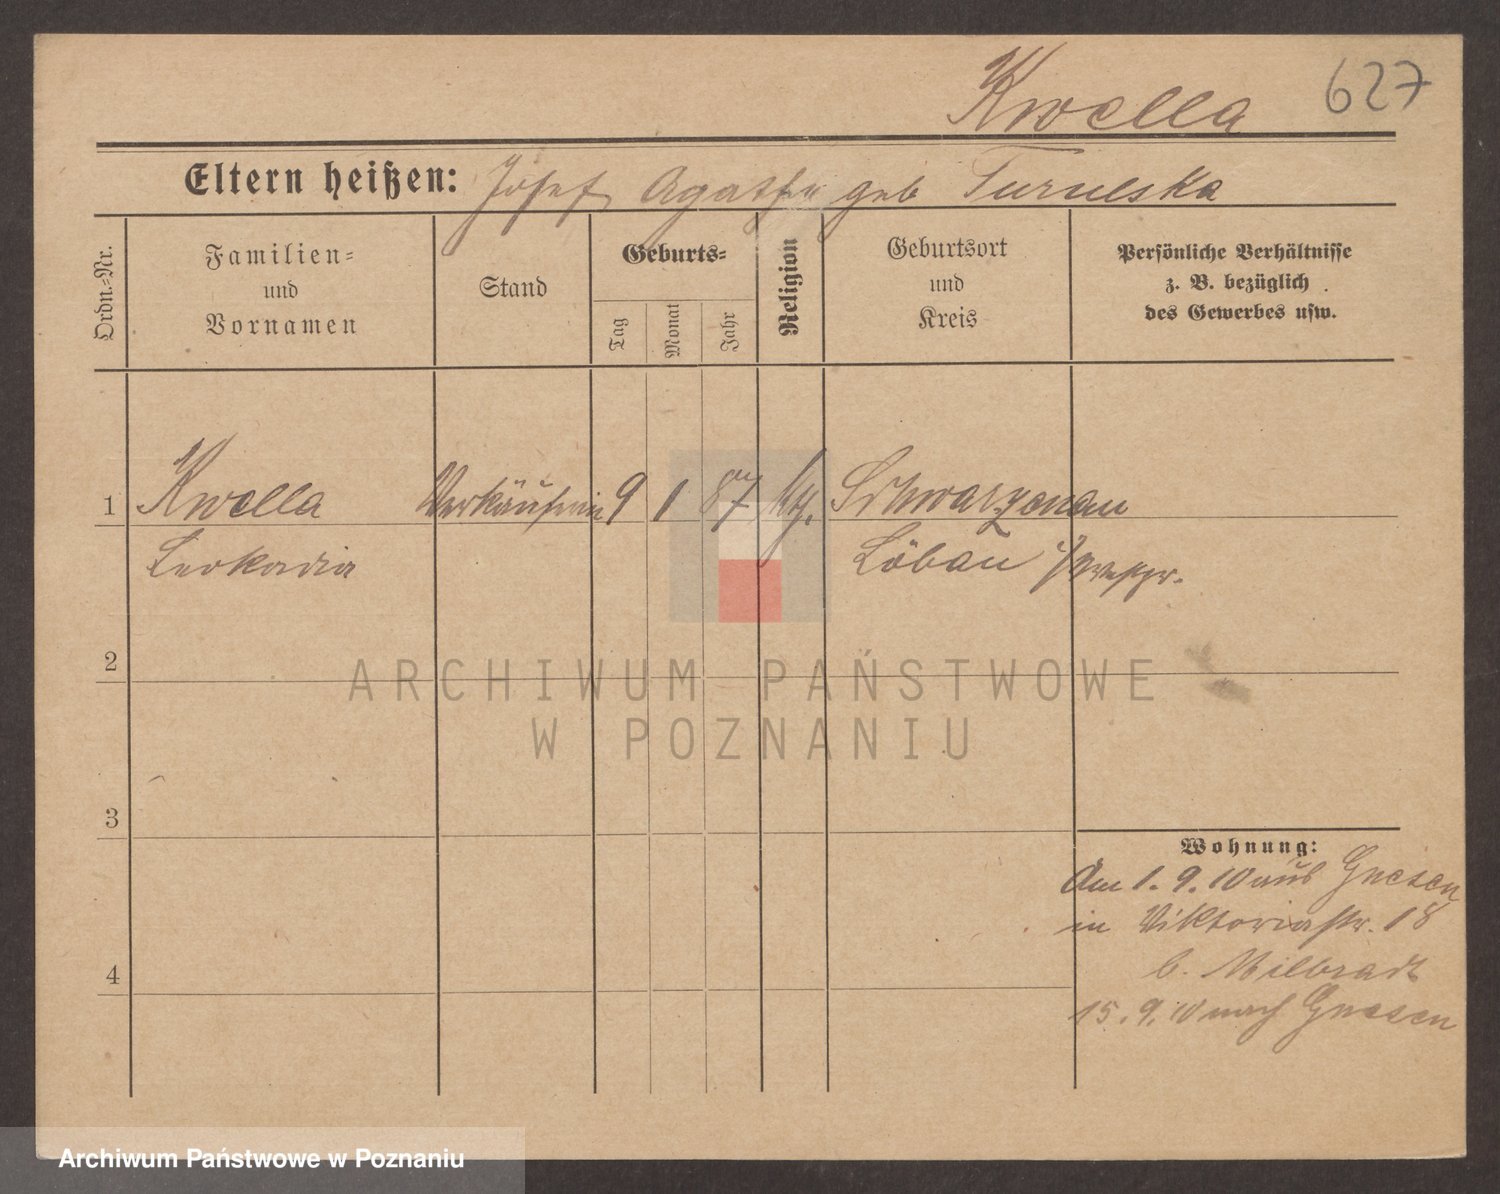 Kwella 627
Eltern heißen: Josef Agatha geb Turulska
Ordn.-Nr.
Familien-
und
Vornamen
Stand
Geburts-
Tag
Monat
Jahr
Religion
Geburtsort
und
Kreis
Persönliche Verhältnisse
z. B. bezüglich
des Gewerbes usw.
1 Kwella Verkäuferin 9 1 87 kth. Schwarzenau
Leokadia Löbau Westpr.
2
3
4
Wohnung:
Am 1.9.10 aus Gnesen
in Viktoriastr. 18
b. Milbradt
15.9.10 nach Gnesen
ARCHIWUM PAŃSTWOWE
W POZNANIU
Archiwum Państwowe w Poznaniu